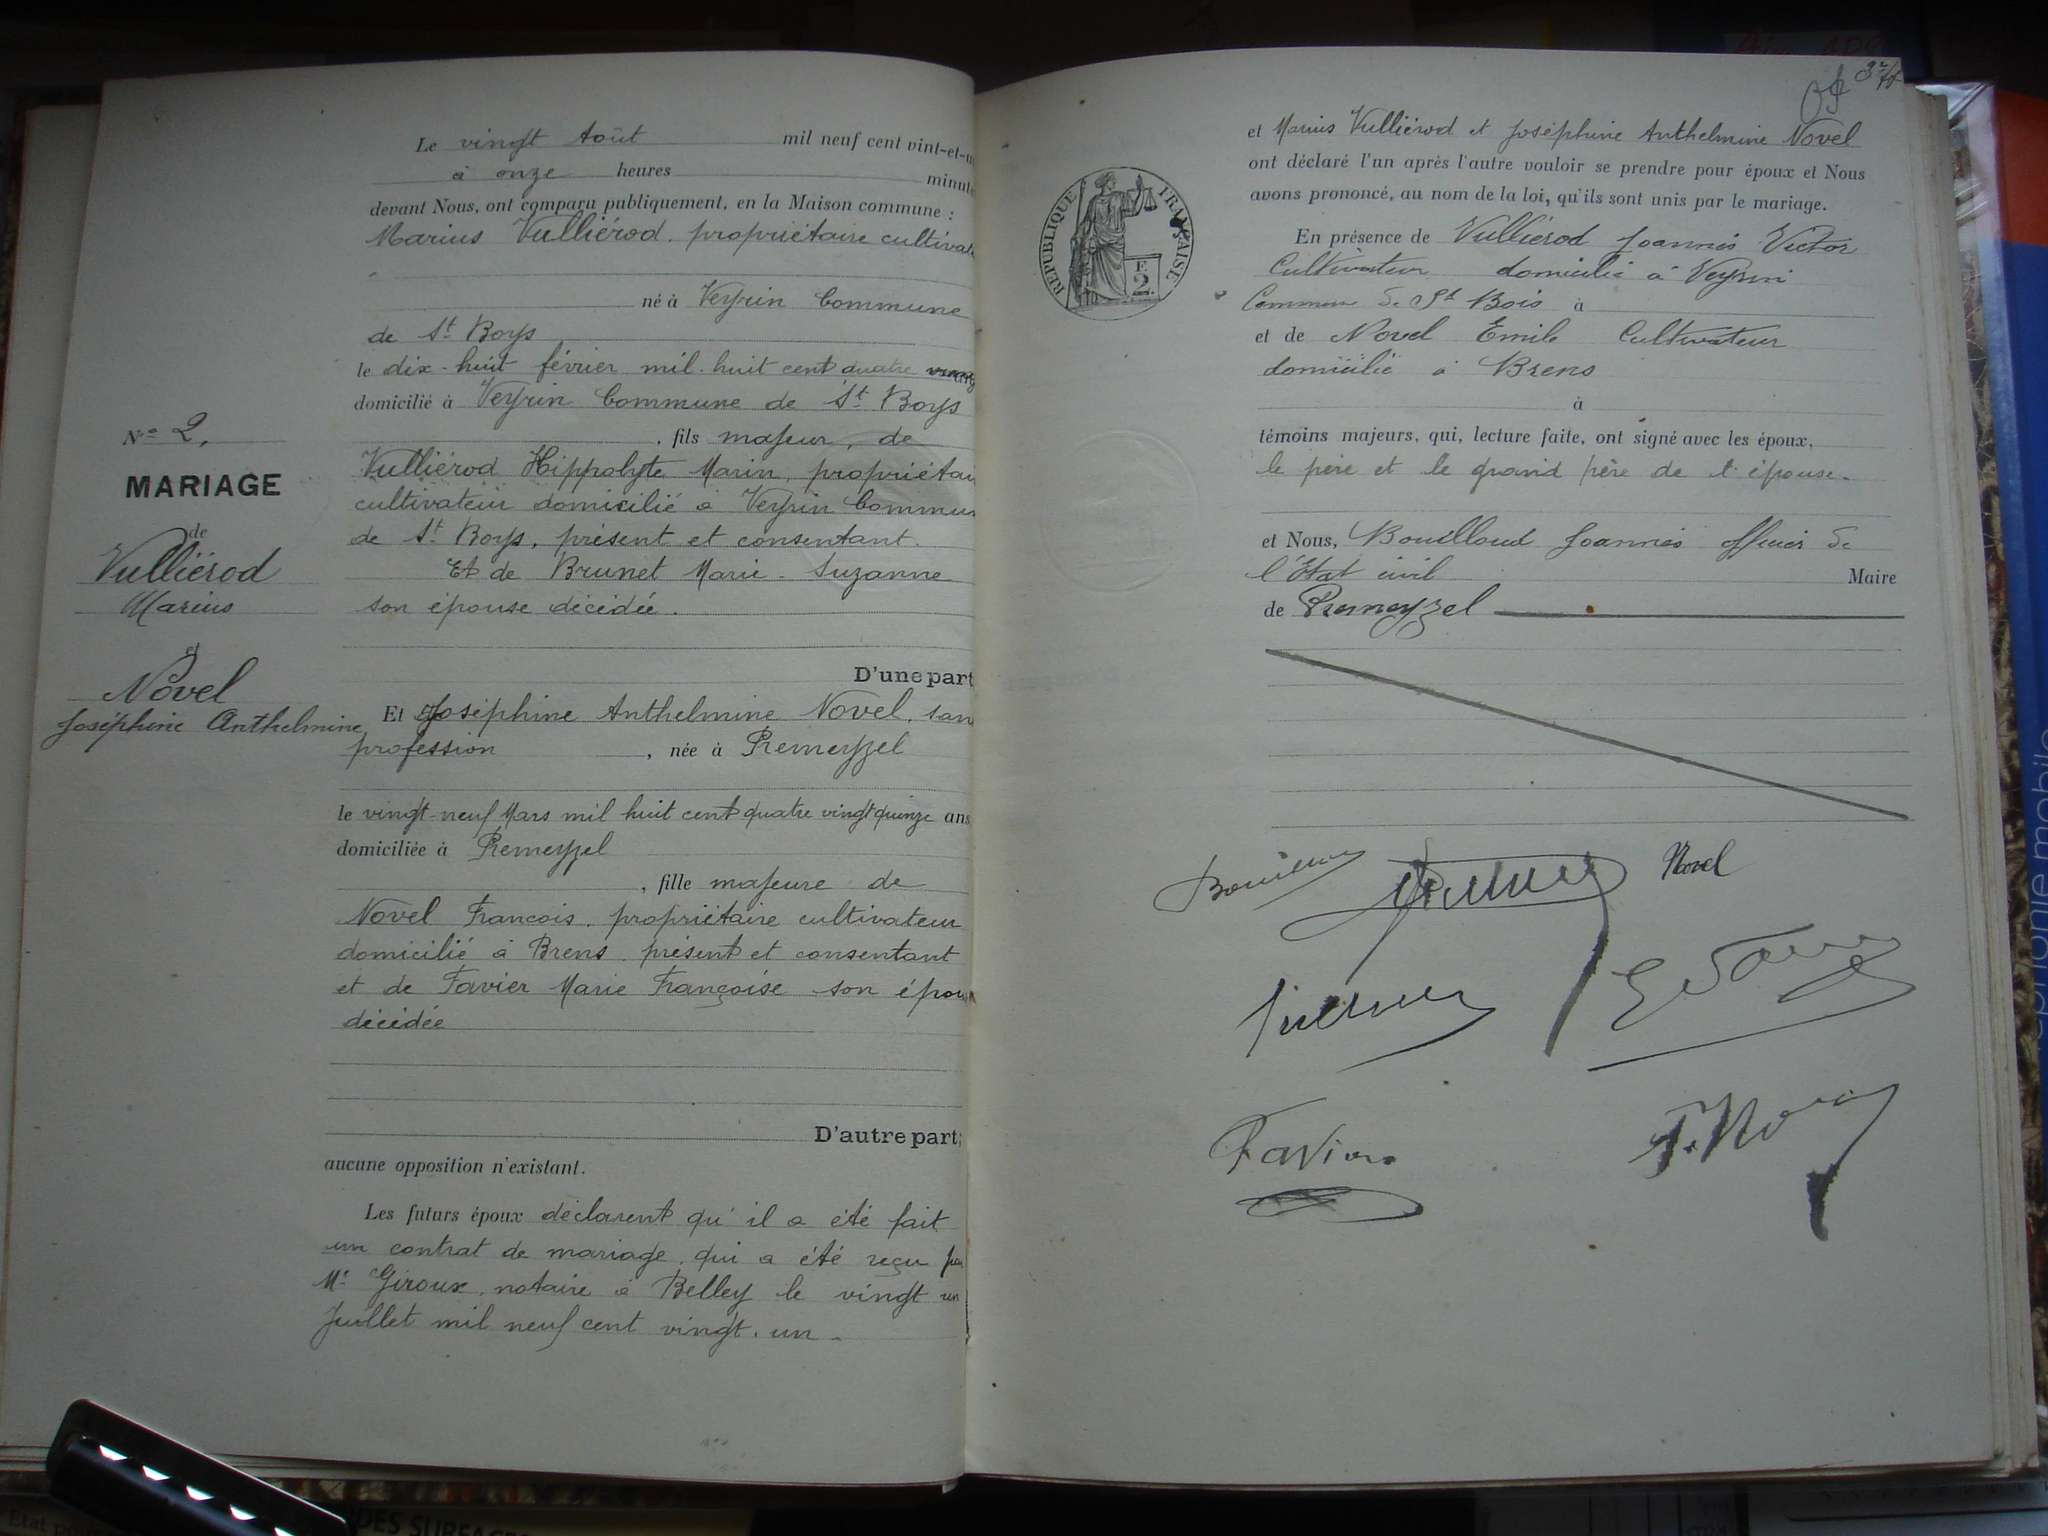 Le vingt Août mil neuf cent vint-et-u
à onze heures minute
devant Nous, ont comparu publiquement, en la Maison commune :
Marius Vulliérod, propriétaire cultivat
né à Veyrin Commune
de St Boys
le dix-huit février mil-huit cent quatre vingt
domicilié à Veyrin Commune de St Boys
, fils majeur, de
Vulliérod Hippolyte Marin, propriétai
cultivateur domicilié à Veyrin Commun
de St Boys, présent et consentant.
Et de Brunet Marie-Suzanne
son épouse décédée.
D'une part
Et Joséphine Anthelmine Novel, san
profession , née à Premeyzel
le vingt-neuf Mars mil huit cent quatre vingt quinze ans
domiciliée à Premeyzel
, fille majeure de
Novel François, propriétaire cultivateur
domicilié à Brens, présent et consentant
et de Favier Marie Françoise son épou
décédée
D'autre part;
aucune opposition n'existant.
Les futurs époux déclarent qu'il a été fait
un contrat de mariage, qui a été reçu pa
Me Giroux, notaire à Belley le vingt un
Juillet mil neuf cent vingt-un-
No 2,
MARIAGE
de
Vulliérod
Marius
et
Novel
Joséphine Anthelmine
et Marius Vulliérod et Joséphine Anthelmine Novel
ont déclaré l'un après l'autre vouloir se prendre pour époux et Nous
avons prononcé, au nom de la loi, qu'ils sont unis par le mariage.
RÉPUBLIQUE FRANÇAISE
E
2.
En présence de Vulliérod Joannès Victor
Cultivateur domicilié à Veyrin
Commune de St Bois à
et de Novel Emile Cultivateur
domicilié à Brens
à
témoins majeurs, qui, lecture faite, ont signé avec les époux,
le père et le grand père de l'épouse.
et Nous, Bouilloud Joannès officier de
l'État civil Maire
de Premeyzel
Novel
Favier
F. Novel